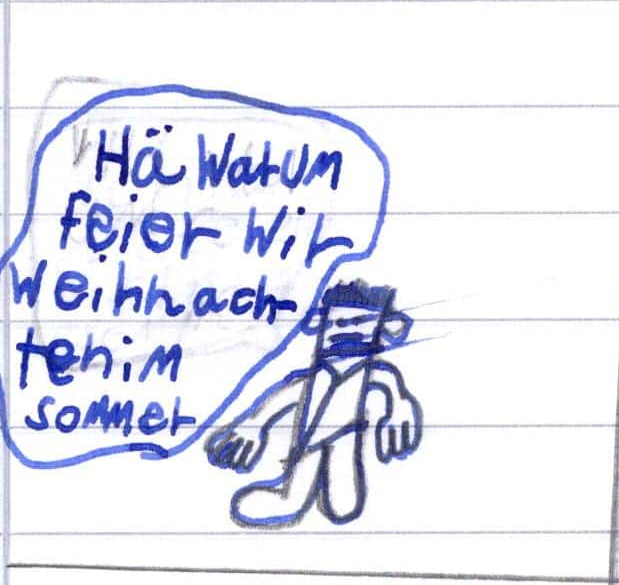 Hä Warum
feier Wir
Weihnach
tenim
sommer